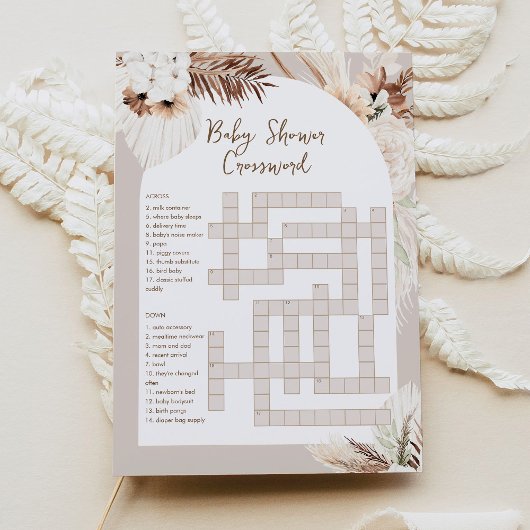 Baby Shower
Crossword
ACROSS
2. milk container
5. where baby sleeps
6. delivery time
8. baby's noise maker
9. papa
11. piggy covers
15. thumb substitute
16. bird baby
17. classic stuffed
cuddly
DOWN
1. auto accessory
2. mealtime neckwear
3. mom and dad
4. recent arrival
7. bawl
10. they're changed
often
11. newborn's bed
12. baby bodysuit
13. birth pangs
14. diaper bag supply